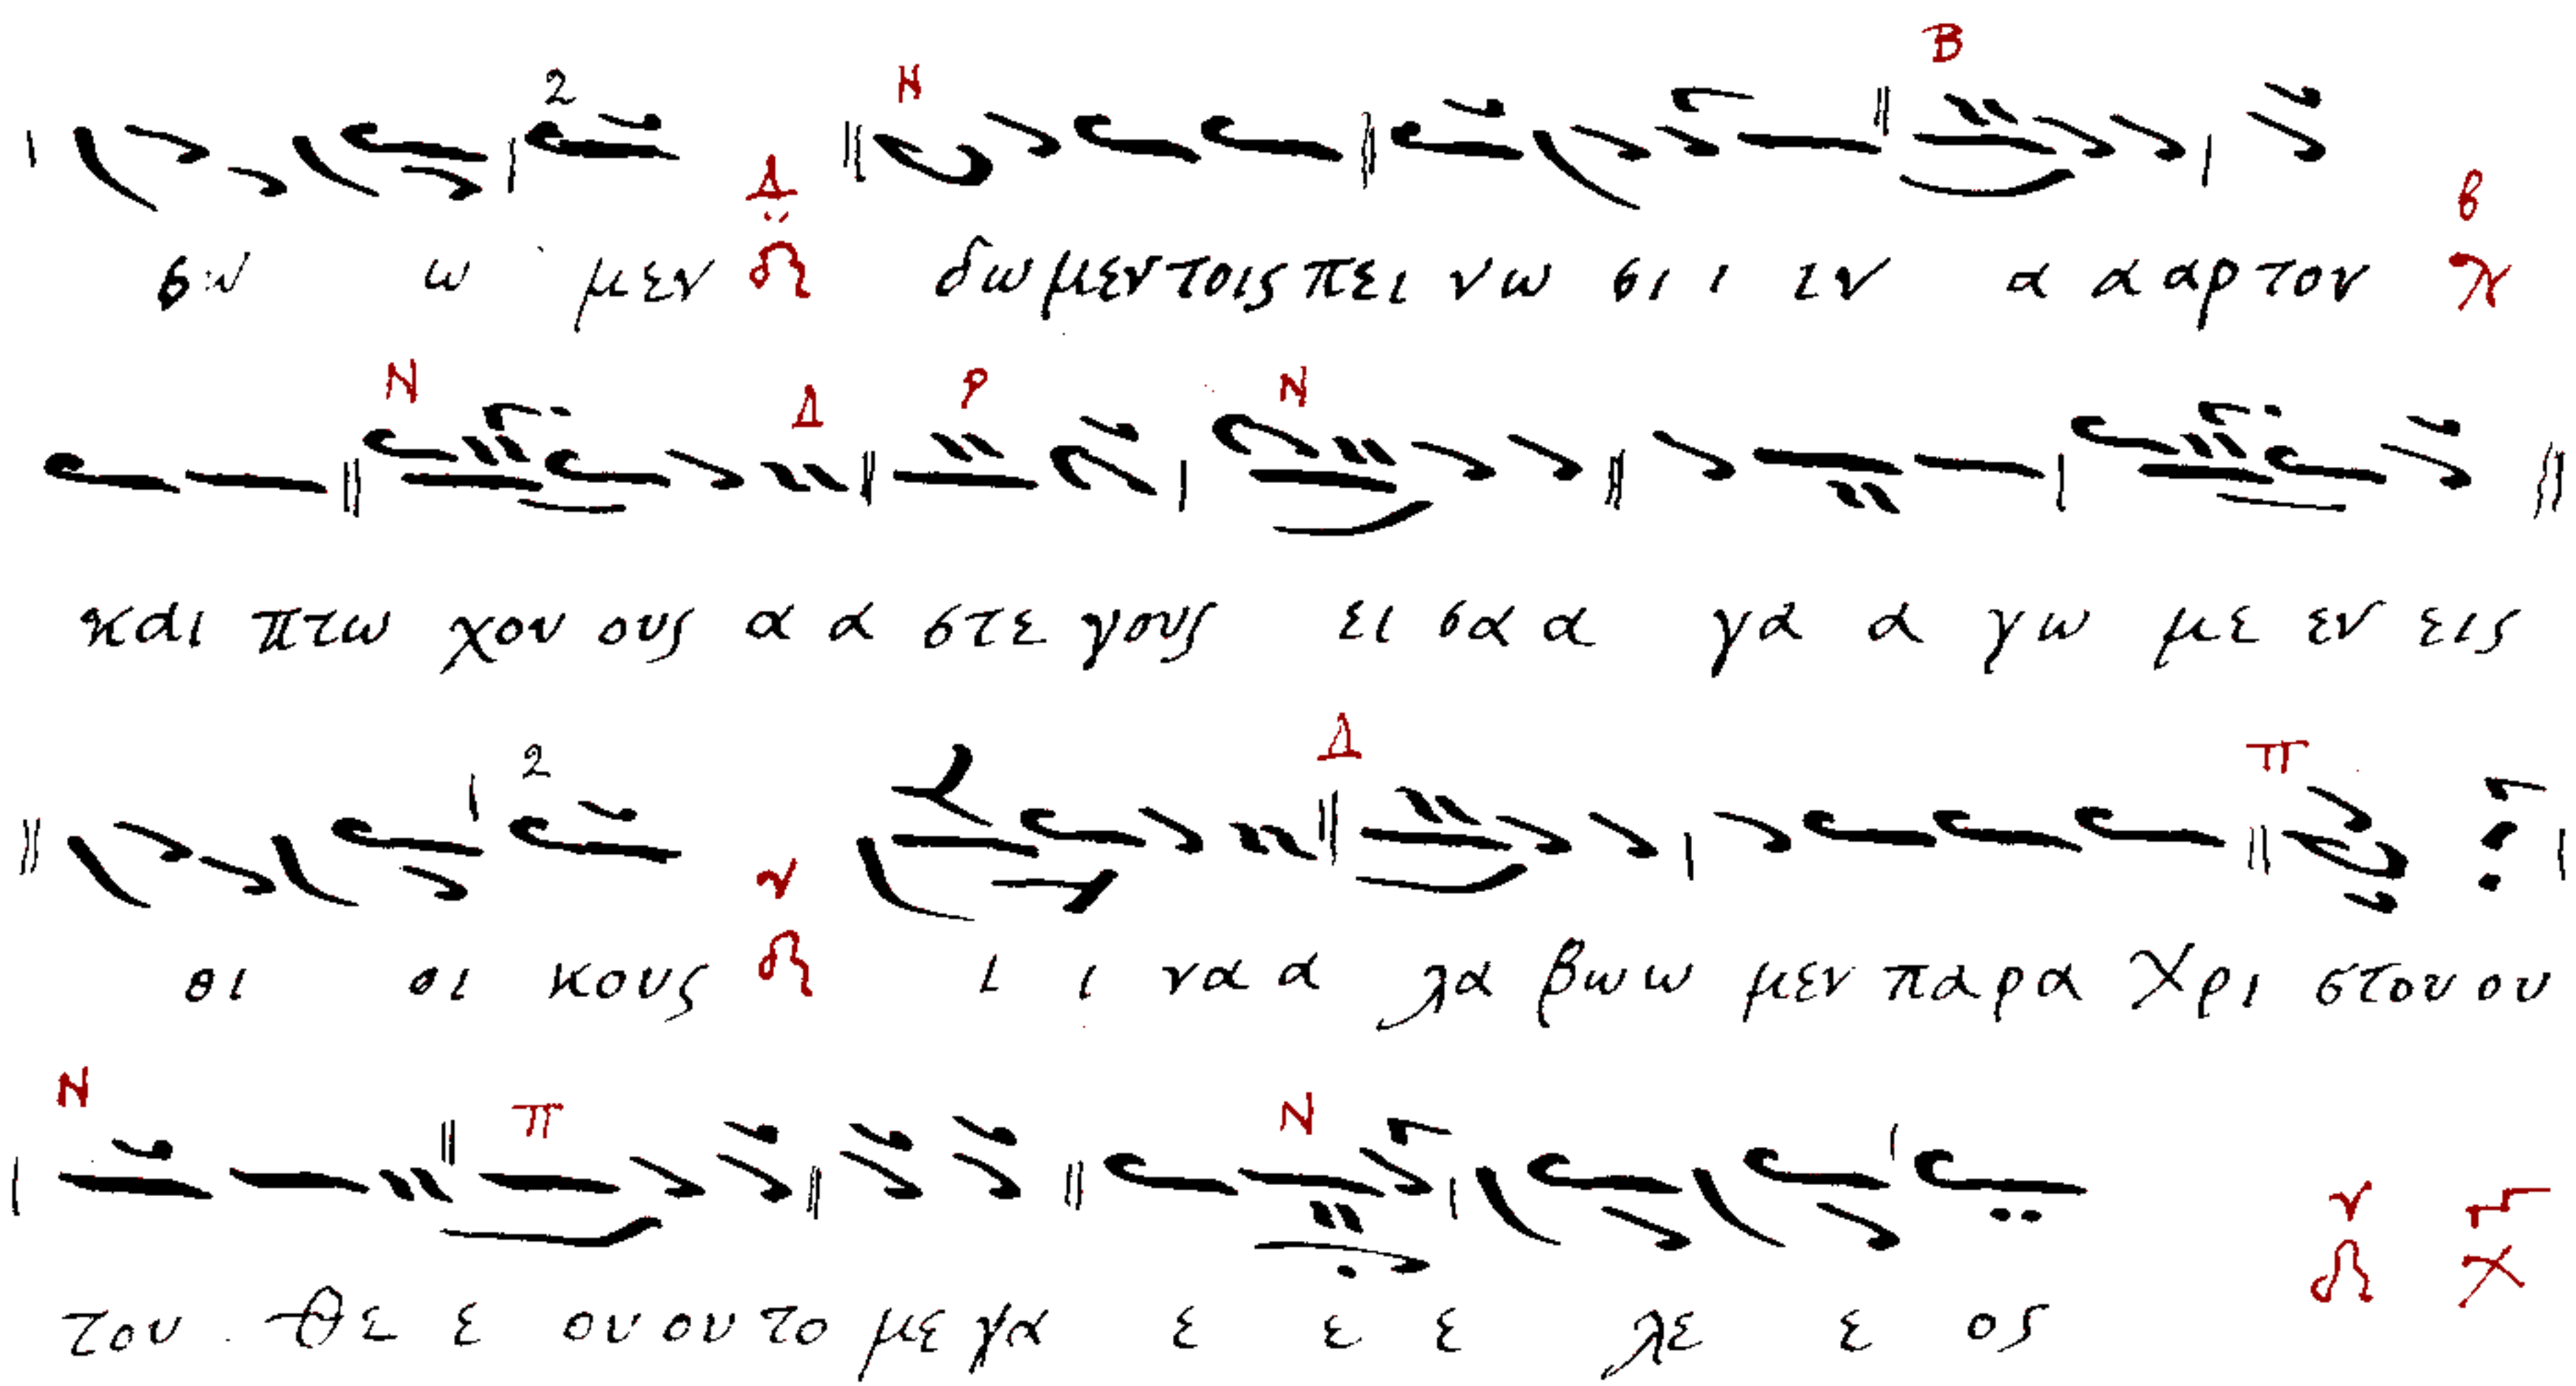 σω ω μεν δω μεν τοις πει νω σι ι ιν α α αρ τον
και πτω χου ους α α στε γους ει σα α γα α γω με εν εις
οι οι κους ι ι να α λα βω ω μεν πα ρα Χρι στου ου
του Θε ε ου ου το με γα ε ε ε λε ε ος